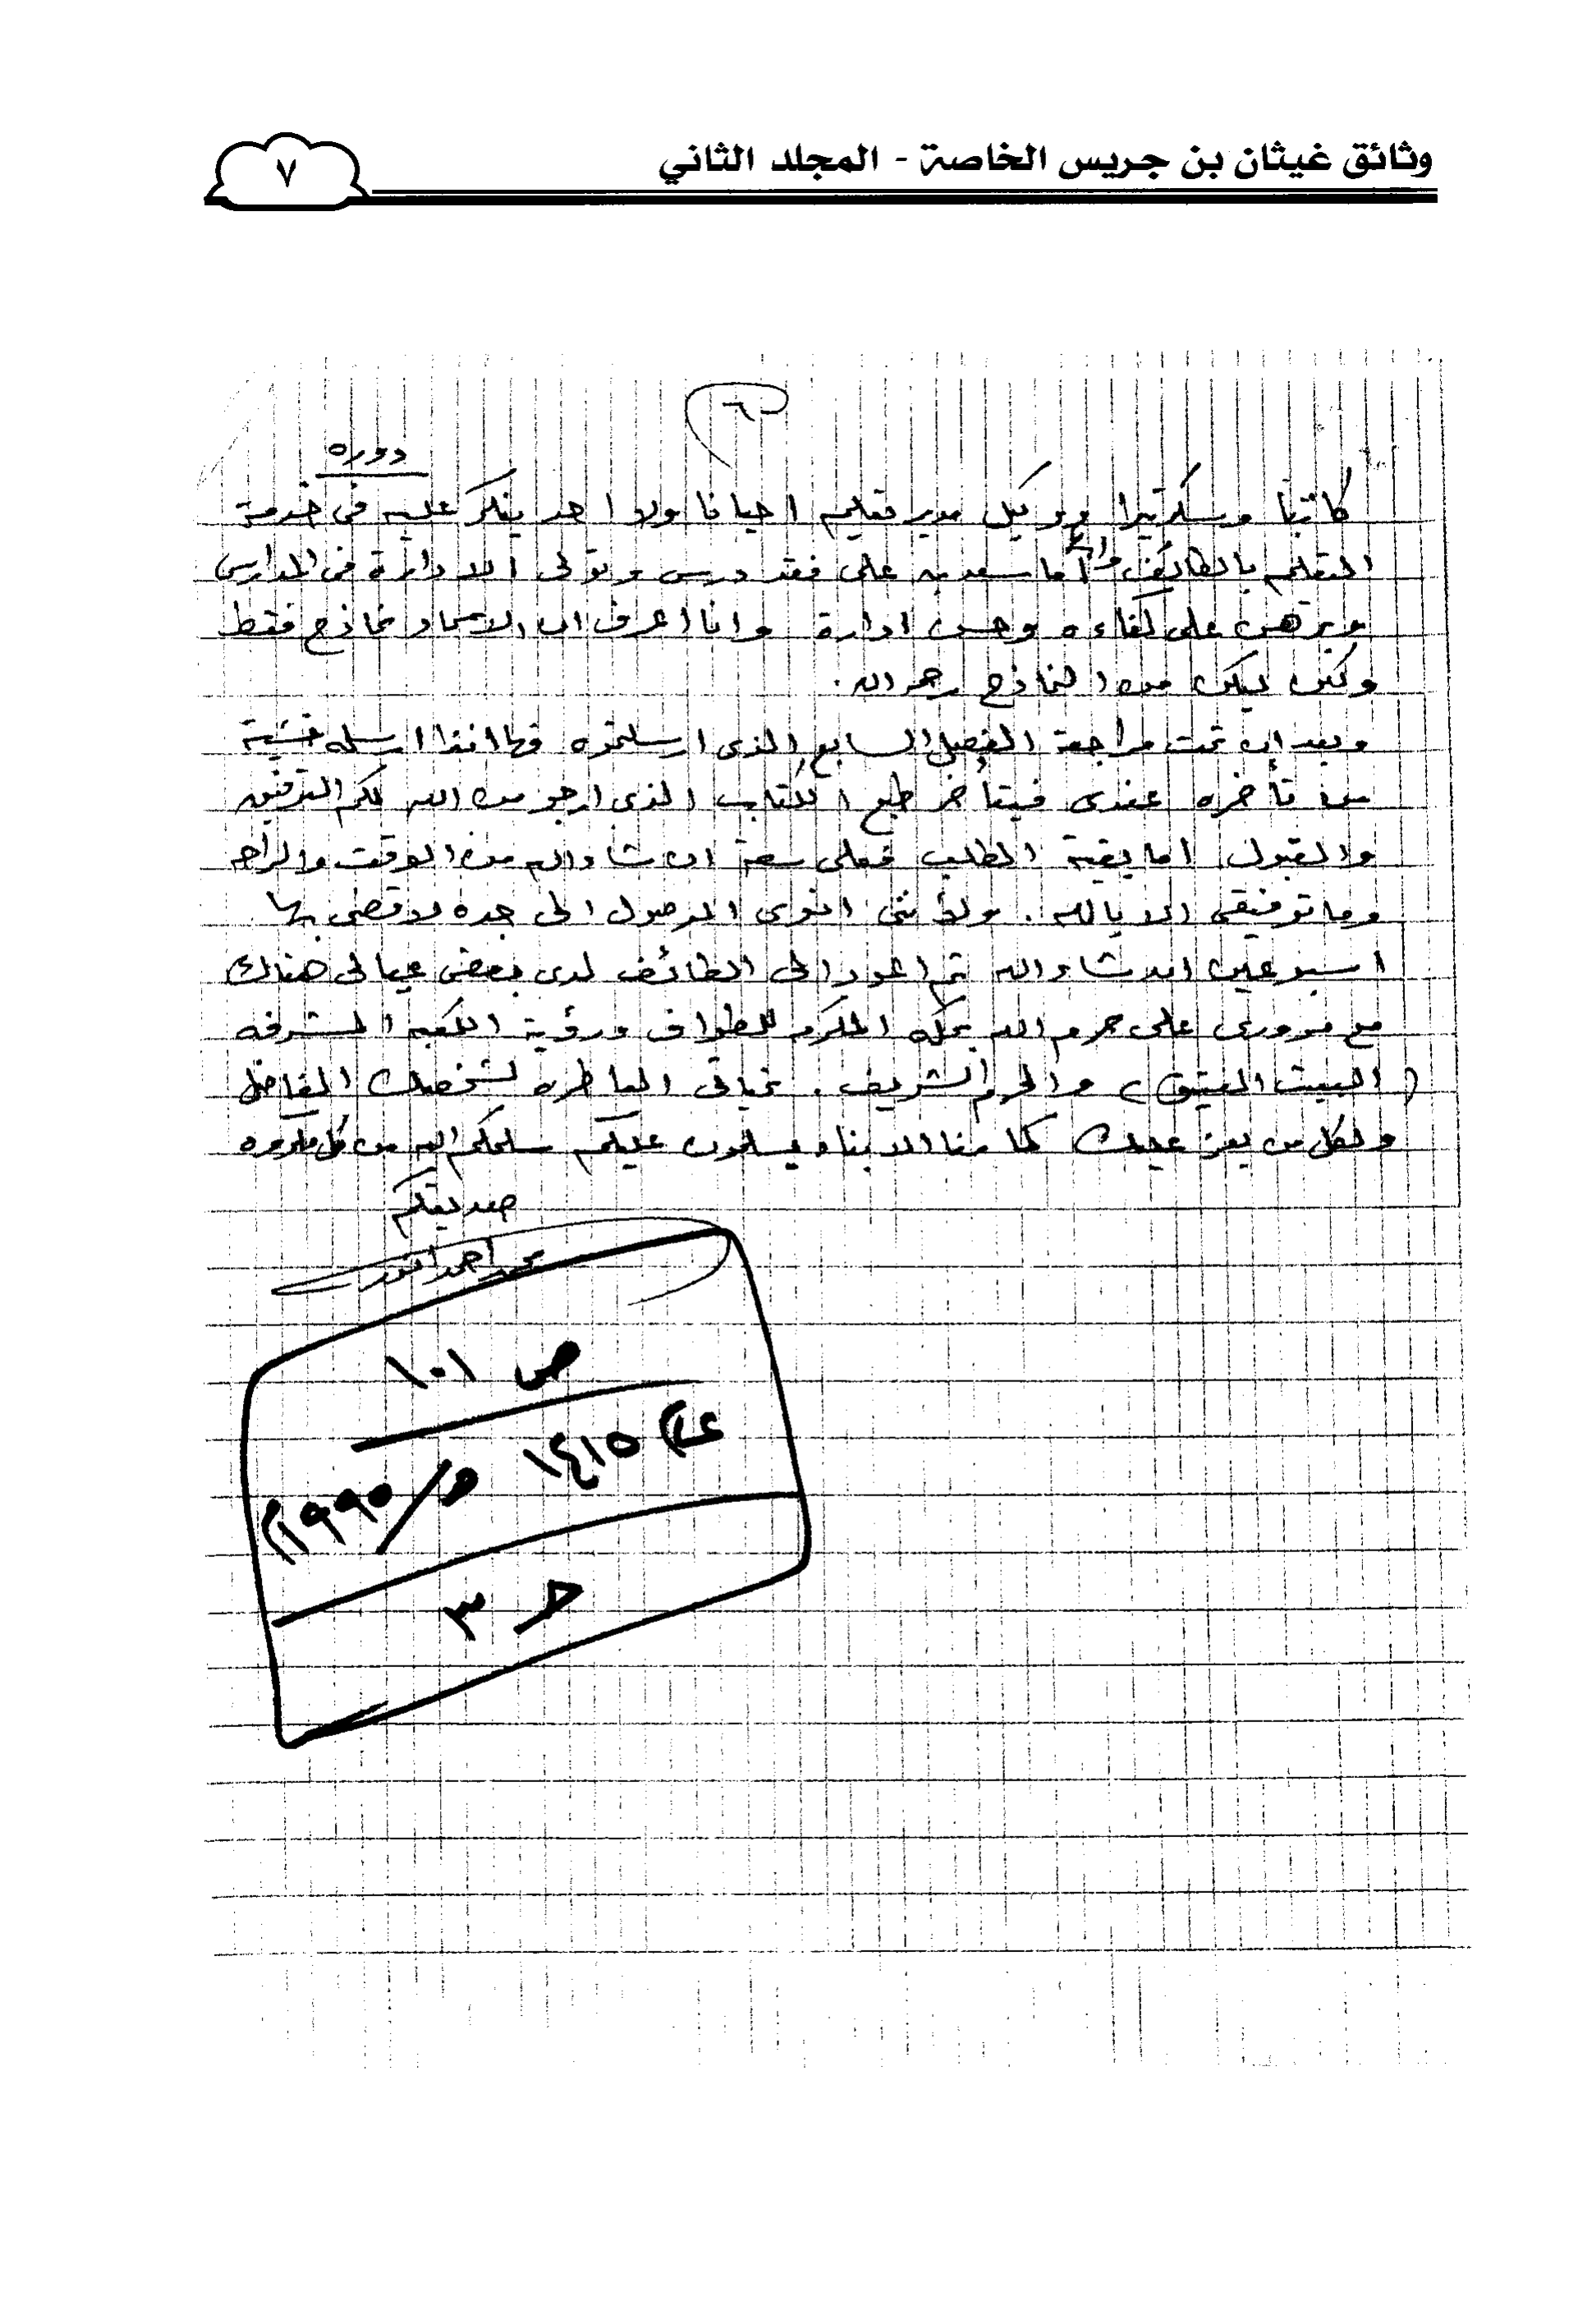 وثائق غيثان بن جريس الخاصة - المجلد الثاني
٧
-٦-
دوره
كاتبا وسكرتيرا ووكيل مدير تعليم احيانا ولا احد ينكر عليه في خدمة
التعليم بالطائف اما سعد بن علي فقد درس وتولى الادارة في المدارس
وبرهن على كفاءه وحسن ادارة وانا اعرف ان الاسماء نماذج فقط
ولكن ليكن من النماذج رحمه الله.
وبعد ان تمت مراجعة الفصل السابع الذى ارسلتموه فها انذا ارسله خشية
من تأخره عندى فيتأخر طبع الكتاب الذى ارجو من الله لكم التوفيق
والقبول اما بقية الطلب فعلى سعة ان شاء الله من الوقت والراحه
وما توفيقي الا بالله. ولأننى انوى الوصول الى جده لاقضى بها
اسبوعين ان شاء الله ثم اعود الى الطائف لدى بعض عيالى هناك
مع مرورى على حرم الله بمكه المكرمه للطواف ورؤية الكعبه المشرفه
(البيت العتيق) والحرم الشريف. تحياتى العاطره لشخصك الفاضل
ولكل من يعز عليك كما منا الابناء يسلمون عليكم سلمكم الله من كل مكروه
صديقكم
محمد احمد انور
ص ١٠١
عام ١٤١٥ هـ/١٩٩٥م
حـ ٣